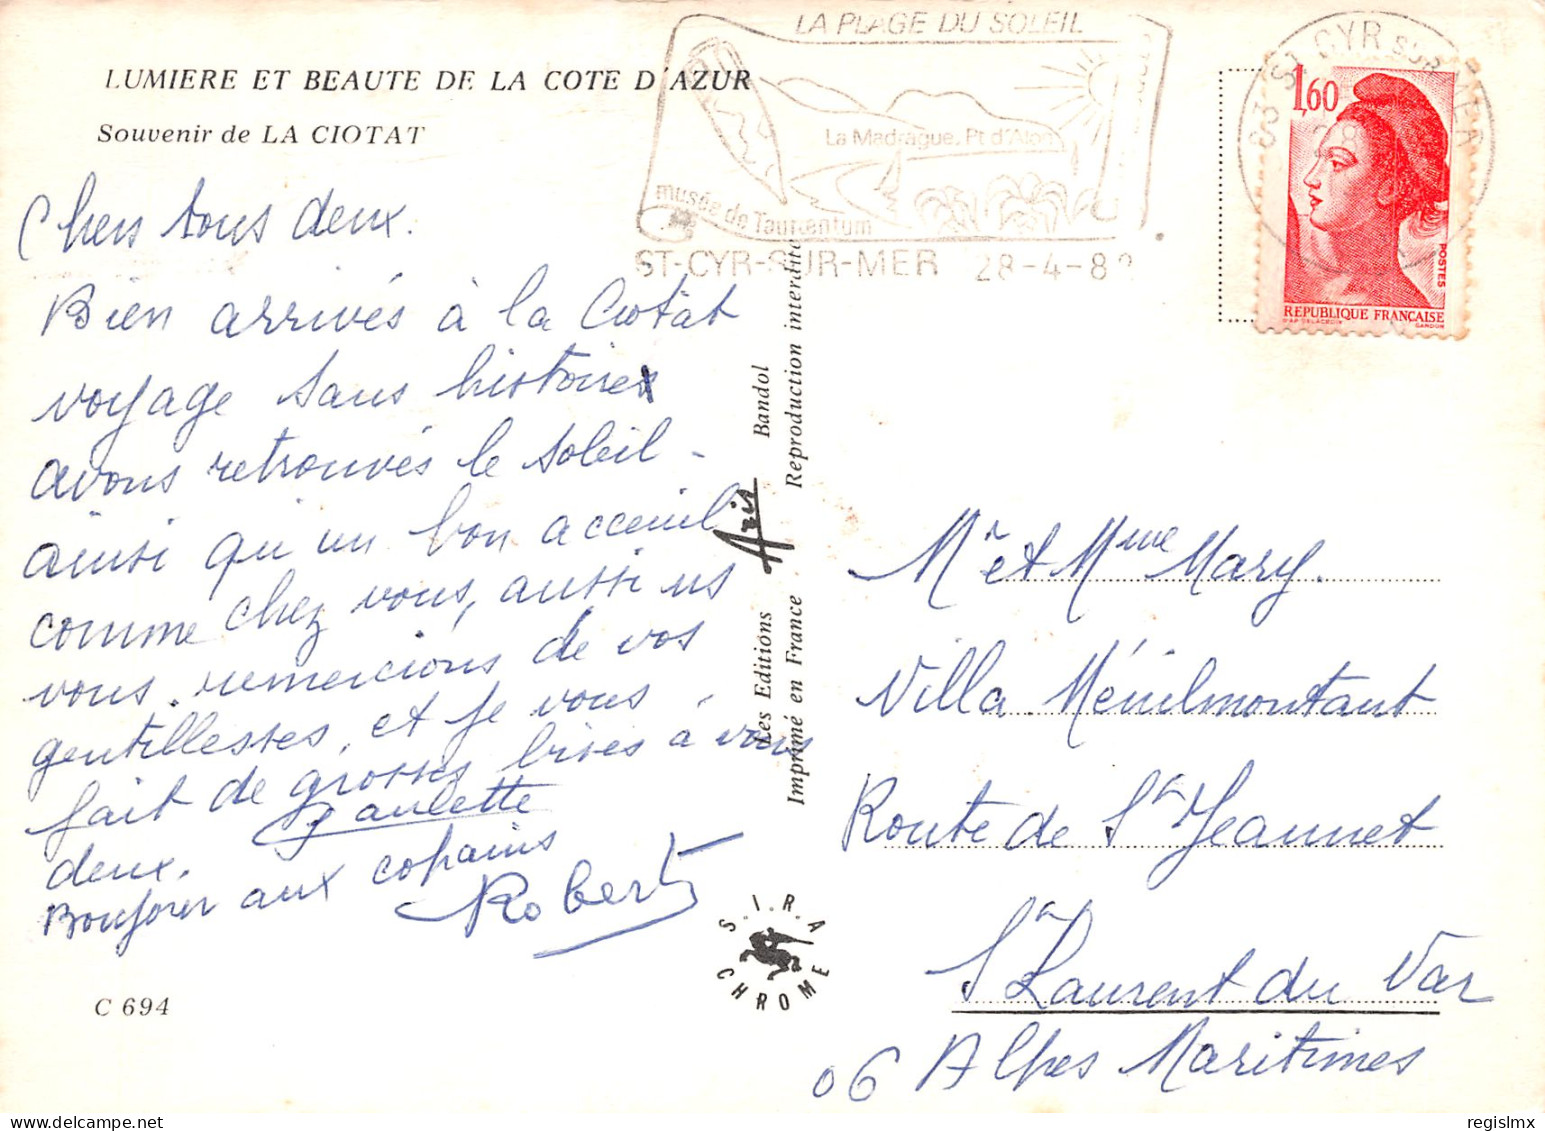 LUMIERE ET BEAUTE DE LA COTE D'AZUR
Souvenir de LA CIOTAT
Chers tous deux.
Bien arrivés à la Ciotat
voyage sans histoires
avons retrouvés le soleil -
ainsi qu'un bon acceuil
comme chez vous, aussi ns
vous remercions de vos
gentillesses, et je vous
fait de grosses bises à vous
deux. Paulette
Bonjour aux copains
Robert
C 694
LA PLAGE DU SOLEIL
La Madrague, Pt d'Alon
musée de Tauroentum
ST-CYR-SUR-MER 28-4-8
83 ST CYR SUR MER
1,60
POSTES
REPUBLIQUE FRANÇAISE
D'AP DELACROIX GANDON
Les Editions Aris Bandol
Imprimé en France Reproduction interdite
S.I.R.A
CHROME
Mr et Mme Mary.
Villa Ménilmontant
Route de St Jeannet
St Laurent du Var
06 Alpes Maritimes
regislmx